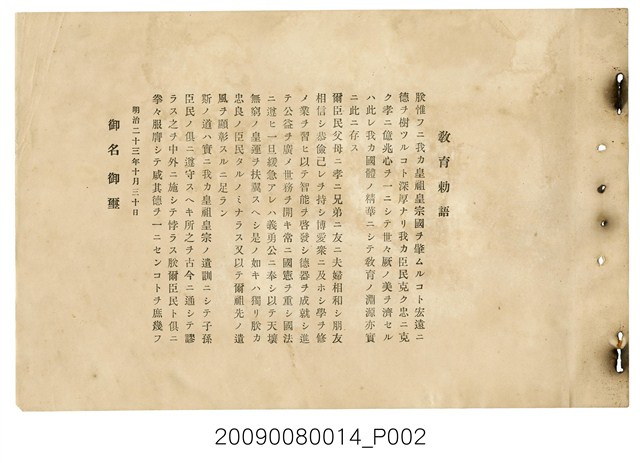 教育勅語
朕惟フニ我カ皇祖皇宗國ヲ肇ムルコト宏遠ニ
德ヲ樹ツルコト深厚ナリ我カ臣民克ク忠ニ克
ク孝ニ億兆心ヲ一ニシテ世々厥ノ美ヲ濟セル
ハ此レ我カ國體ノ精華ニシテ敎育ノ淵源亦實
ニ此ニ存ス
爾臣民父母ニ孝ニ兄弟ニ友ニ夫婦相和シ朋友
相信シ恭儉己レヲ持シ博愛衆ニ及ホシ學ヲ修
メ業ヲ習ヒ以テ智能ヲ啓發シ德器ヲ成就シ進
テ公益ヲ廣メ世務ヲ開キ常ニ國憲ヲ重シ國法
ニ遵ヒ一旦緩急アレハ義勇公ニ奉シ以テ天壤
無窮ノ皇運ヲ扶翼スヘシ是ノ如キハ獨リ朕カ
忠良ノ臣民タルノミナラス又以テ爾祖先ノ遺
風ヲ顯彰スルニ足ラン
斯ノ道ハ實ニ我カ皇祖皇宗ノ遺訓ニシテ子孫
臣民ノ俱ニ遵守スヘキ所之ヲ古今ニ通シテ謬
ラス之ヲ中外ニ施シテ悖ラス朕爾臣民ト俱ニ
拳々服膺シテ咸其德ヲ一ニセンコトヲ庶幾フ
明治二十三年十月三十日
御名御璽
20090080014_P002